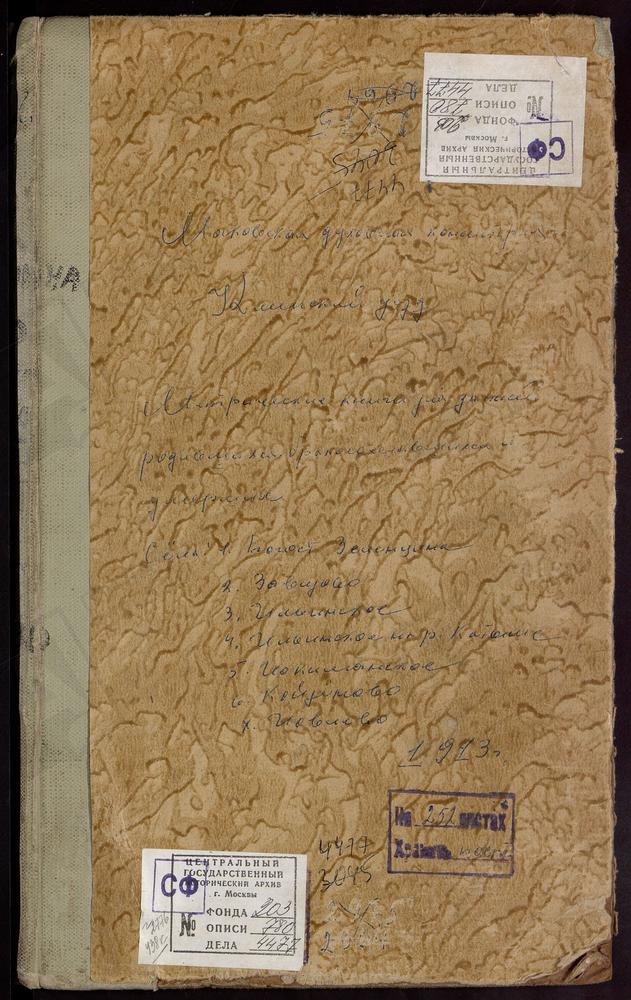 ЦЕНТРАЛЬНЫЙ
ГОСУДАРСТВЕННЫЙ
ИСТОРИЧЕСКИЙ АРХИВ
г. Москвы
СФ
ФОНДА 203
№ ОПИСИ 780
ДЕЛА 4477
3045
4477
Московская духовная консистория
Клинский уезд
Метрические книги
родившихся бракосочетавшихся и
умерших
Сёла: 1. Погост Зеленцино
2. Завидово
3. Ильинское
4. Ильинское на р. Катыше
5. Иакиманское
6. Койдиново
7. Иовлево
1913г.
На 252 листах
Хранить пост.
4477
3045
ЦЕНТРАЛЬНЫЙ
ГОСУДАРСТВЕННЫЙ
ИСТОРИЧЕСКИЙ АРХИВ
г. Москвы
СФ
ФОНДА 203
№ ОПИСИ 780
ДЕЛА 4477